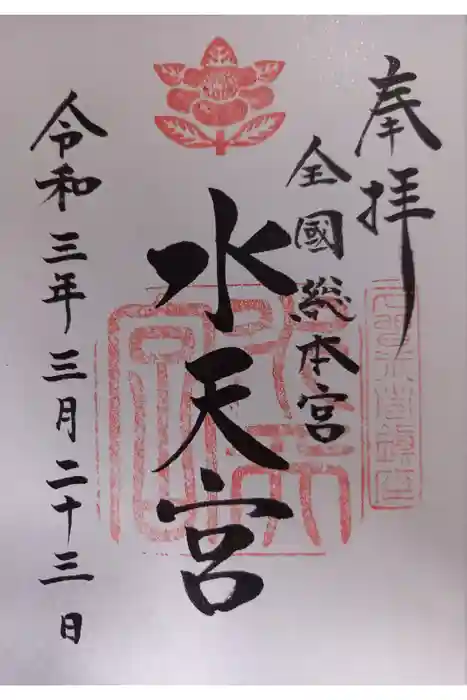 奉拝
全國総本宮
水天宮
令和三年三月二十三日